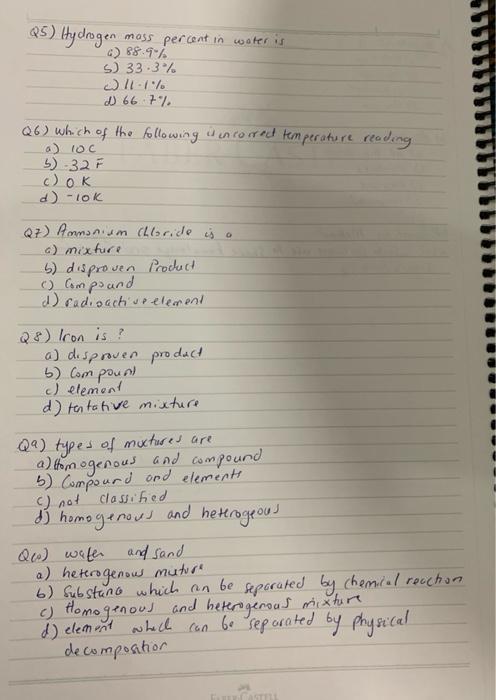 Q5) Hydrogen mass percent in water is
a) 88.9%
b) 33.3%
c) 11.1%
d) 66.7%
Q6) which of the following is incorrect temperature reading
a) 10 C
b) -32 F
c) 0 K
d) -10 K
Q7) Ammonium chloride is a
a) mixture
b) disproven Product
c) Compound
d) radioactive element
Q8) Iron is ?
a) disproven product
b) Compound
c) element
d) tentative mixture
Q9) types of mixtures are
a) Homogenous and compound
b) Compound and elements
c) not classified
d) homogenous and heterogeous
Q10) water and sand
a) heterogenous mixture
b) Substance which can be separated by chemical reaction
c) Homogenous and heterogenous mixture
d) element which can be separated by physical
decomposition
FABER-CASTELL